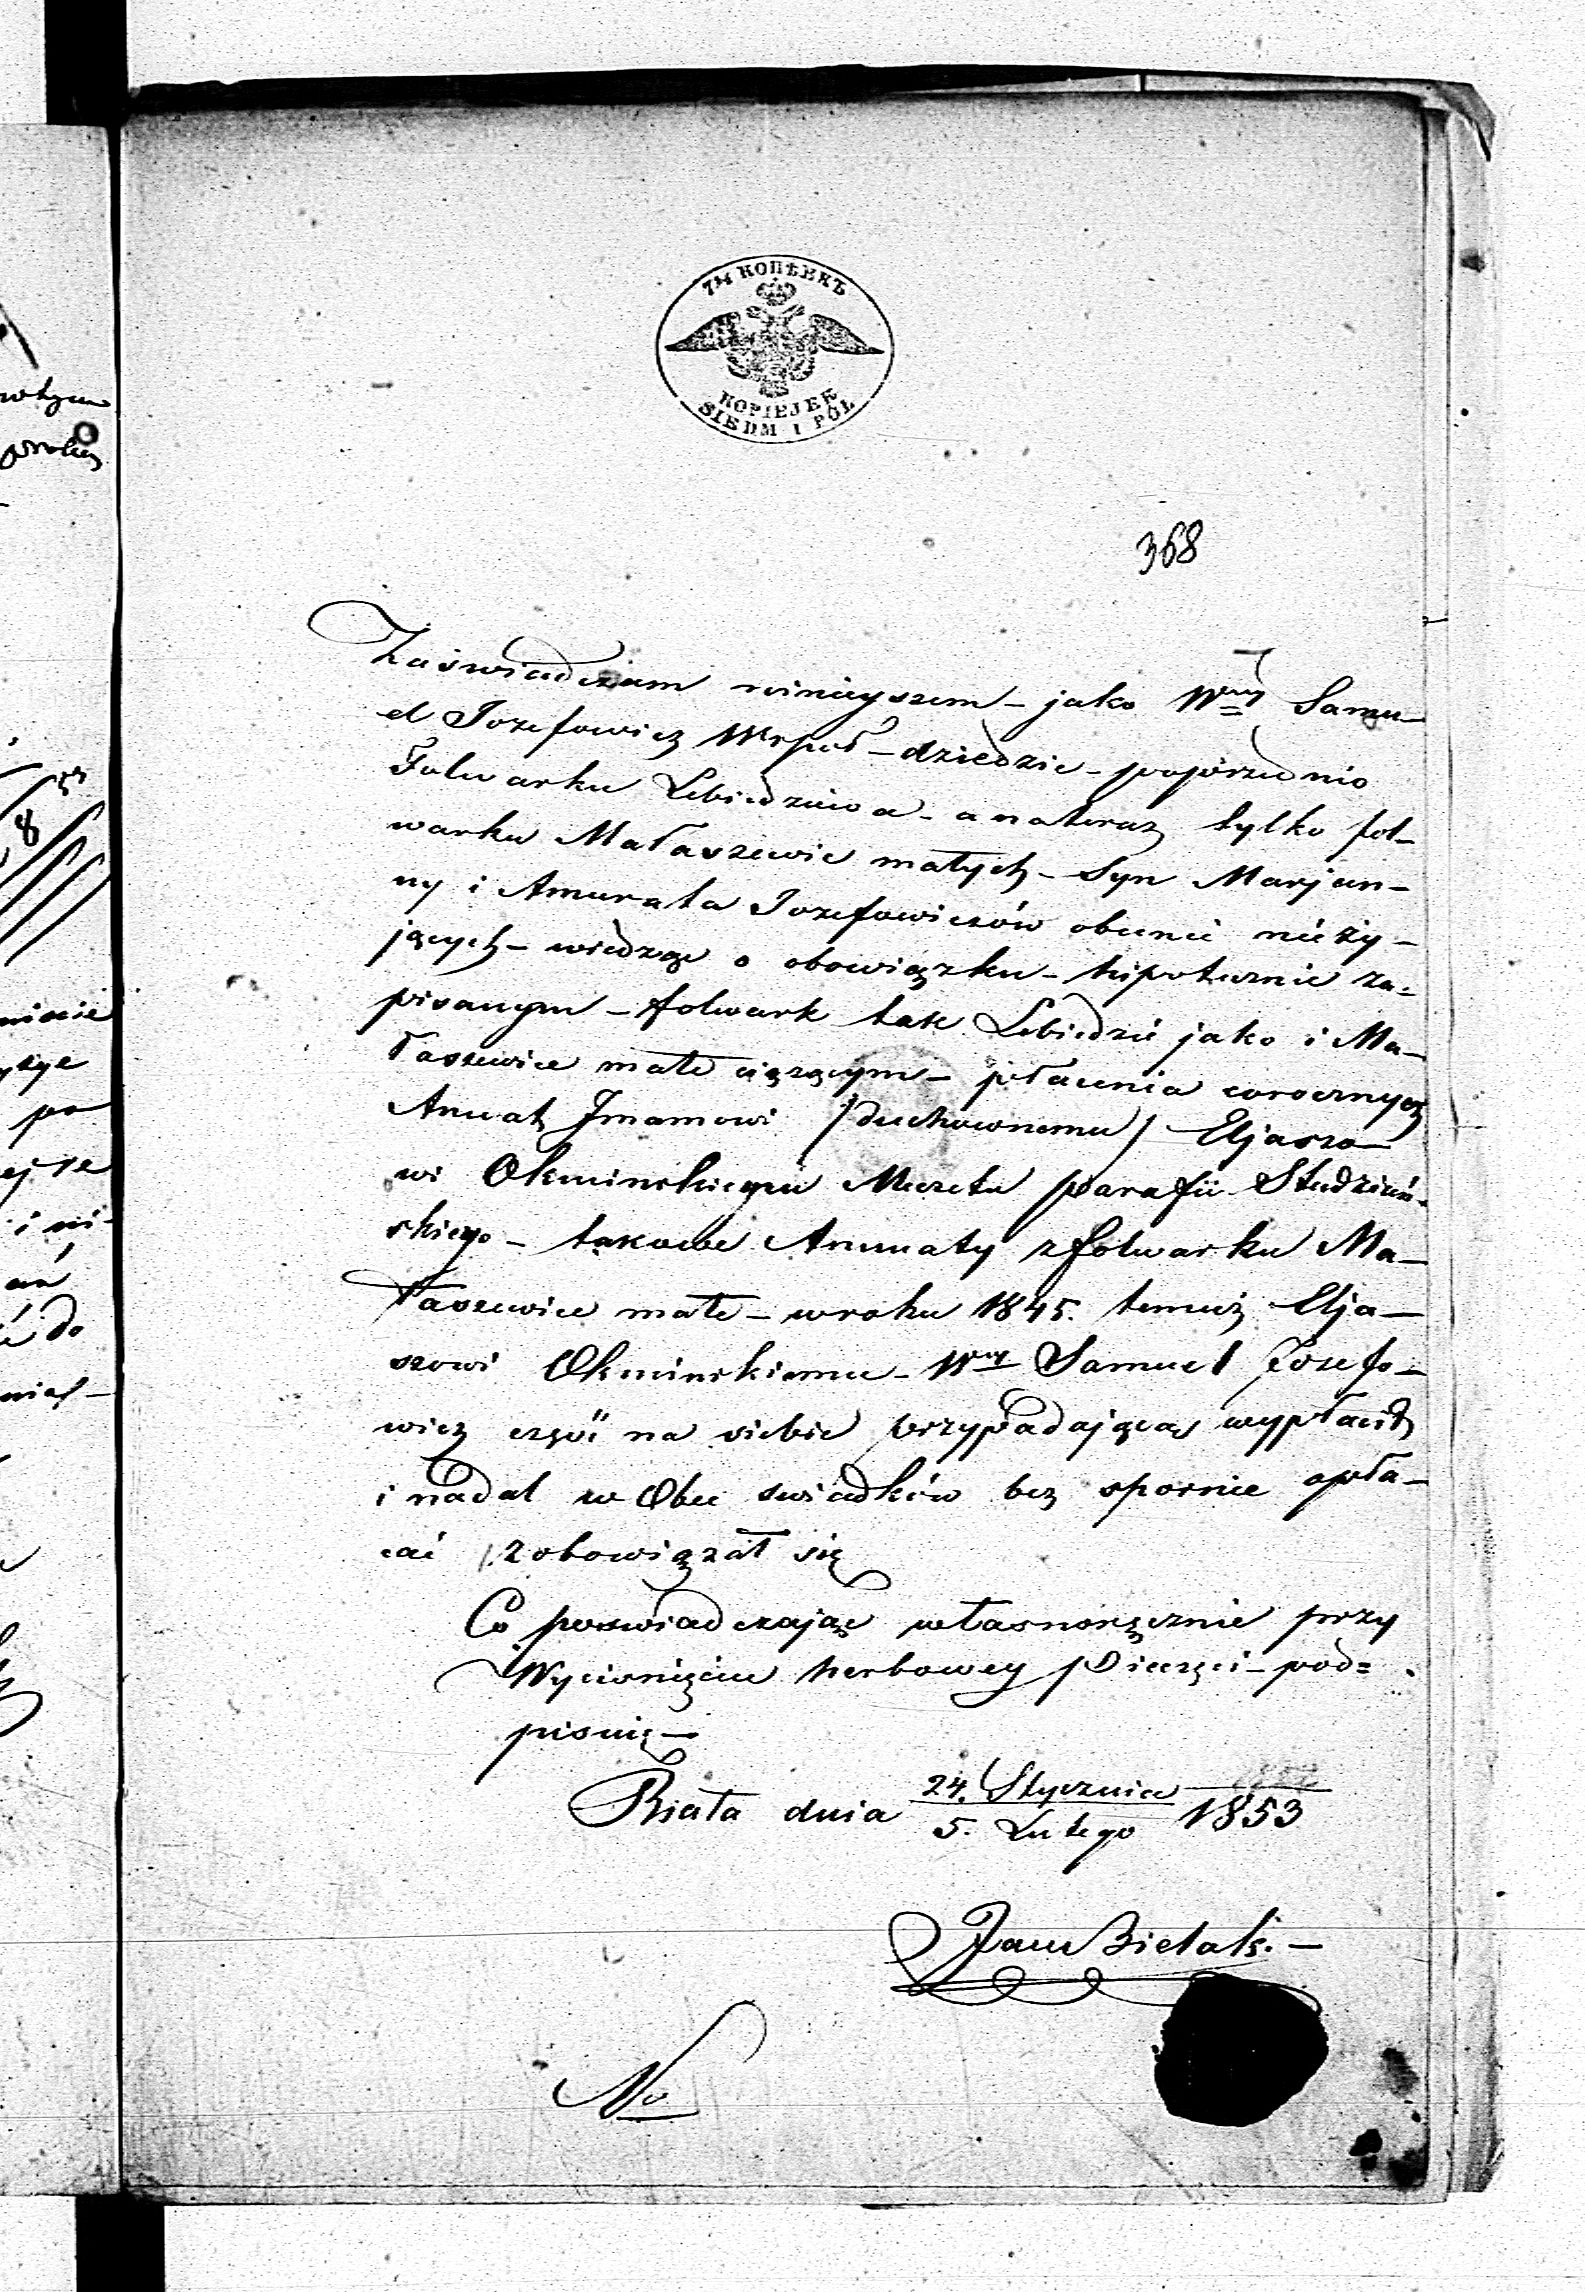 7½ КОПѢЕКЪ
KOPIEJEK
SIEDM I PÓŁ
368
Zaświadczam niniejszem – jako Wny Samu–
el Jozefowicz Wspoł–dziedzic – poprzednio
Folwarku Lebiedziewa – a na teraz tylko fol–
warku Małaszewic małych – Syn Marjan–
ny i Amurata Jozefowiczów obunie nieży–
jących – wiedząc o obowiązku – hipotecznie za=
pisanym – folwark tak Lebiedzie jako i Ma–
łaszewice małe ciążącym – płacenia corocznych
Anuat Imamowi /duchownemu/ Eljaszo–
wi Okminskiemu Meczetu parafii Studzian–
skiego – takowe Annuaty z folwarku Ma–
łaszewice małe – w roku 1845. temuż Elja–
szowi Okminskiemu – Wny Samuel Jozefo–
wicz część na siebie przypadającą wypłacił
i nadal w Obec swiadków bez spornie opła–
cać zobowiązał się
Co poswiadczając własnoręcznie przy
Wycisnięciu herbowey Pieczęci – pod=
pisuię –
Biała dnia 24. Stycznia
5. Lutego 1853
Jan Bielak. –
No